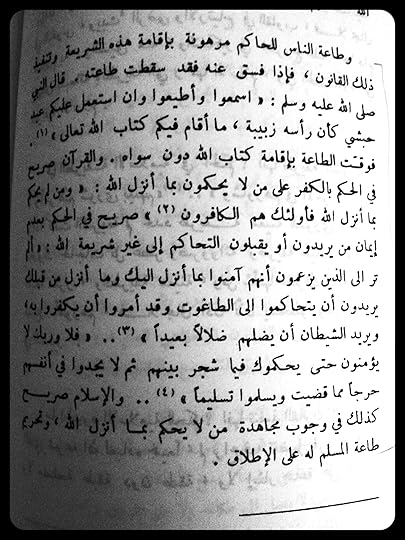 الله
وطاعة الناس للحاكم مرهونة بإقامة هذه الشريعة وتنفيذ
ذلك القانون ، فإذا فسق عنه فقد سقطت طاعته . قال النبي
صلى الله عليه وسلم : « اسمعوا وأطيعوا وان استعمل عليكم عبد
حبشي كأن رأسه زبيبة ، ما أقام فيكم كتاب الله تعالى » (١) .
فوقتت الطاعة بإقامة كتاب الله دون سواه . والقرآن صريح
في الحكم بالكفر على من لا يحكمون بما أنزل الله : « ومن لم يحكم
بما أنزل الله فأولئك هم الكافرون (٢) » صريح في الحكم بعدم
إيمان من يريدون أو يقبلون التحاكم إلى غير شريعة الله : « ألم
تر الى الذين يزعمون أنهم آمنوا بما أنزل اليك وما أنزل من قبلك
يريدون أن يتحاكموا الى الطاغوت وقد أمروا أن يكفروا به ،
ويريد الشيطان أن يضلهم ضلالاً بعيداً » (٣) .. « فلا وربك لا
يؤمنون حتى يحكموك فيما شجر بينهم ثم لا يجدوا في أنفسهم
حرجاً مما قضيت ويسلموا تسليماً » (٤) .. والإسلام صريح
كذلك في وجوب مجاهدة من لا يحكم بما أنزل الله ، وتحريم
طاعة المسلم له على الإطلاق .